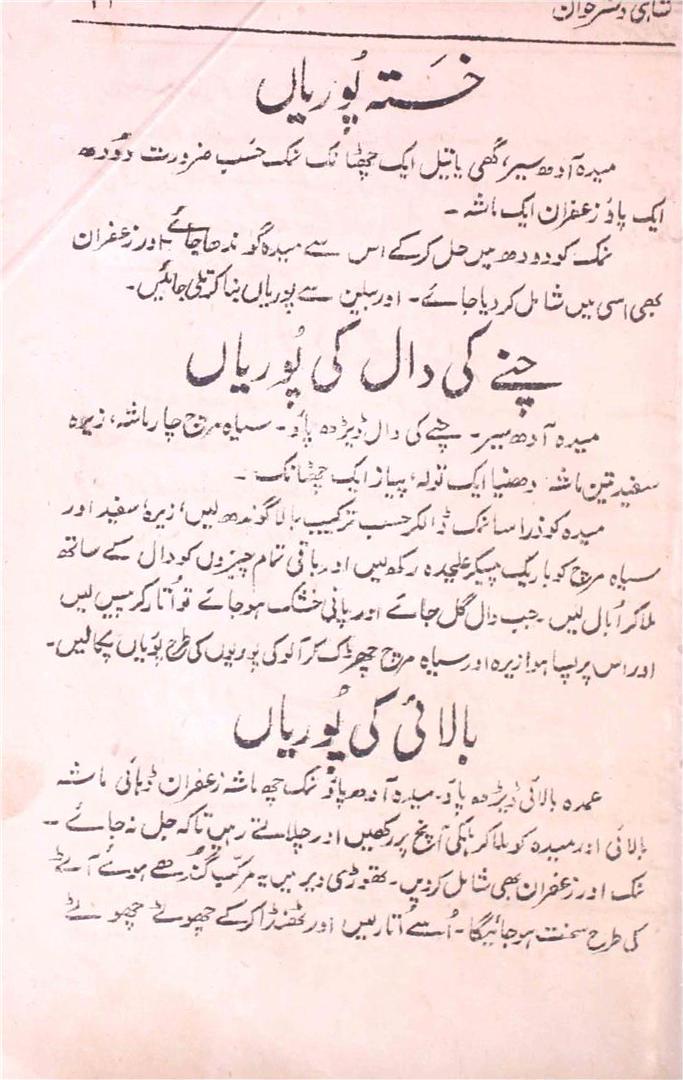 شاہی دسترخوان
خستہ پُوریاں
میدہ آدھ سیر، گھی یا تیل ایک چھٹانک نمک حَسب ضرورت دُودھ
ایک پاؤ زعفران ایک ماشہ ۔
نمک کو دودھ میں حل کرکے اس سے میدہ گوندھا جائے اور زعفران
بھی اسی میں شامل کر دیا جائے۔ اور بیلن سے پوریاں بنا کر تلی جائیں۔
چنے کی دال کی پُوریاں
میدہ آدھ سیر۔ چنے کی دال ڈیڑھ پاؤ۔ سیاہ مرچ چار ماشہ، زیرہ
سفید تین ماشہ دھنیا ایک تولہ، پیاز ایک چھٹانک ۔
میدہ کو ذرا سا نمک ڈالکر حسب ترکیب بالا گوندھ لیں، زیرہ سفید اور
سیاہ مرچ کو باریک پیسکر علیحدہ رکھ لیں اور باقی تمام چیزوں کو دال کے ساتھ
ملا کر اُبال لیں ۔ جب دال گل جائے اور پانی خشک ہو جائے تو اُتار کر پیس لیں
اور اس پر پسا ہوا زیرہ اور سیاہ مرچ چھڑک کر آلو کی پوریوں کی طرح پوریاں پکالیں۔
بالائی کی پُوریاں
عمدہ بالائی ڈیڑھ پاؤ۔ میدہ آدھ پاؤ نمک چھ ماشہ زعفران ڈہائی ماشہ
بالائی اور میدہ کو ملا کر ہلکی آنچ پر رکھیں اور چلاتے رہیں تاکہ جل نہ جائے ۔
نمک اور زعفران بھی شامل کردیں۔ تھوڑی دیر میں یہ مرکب گندھے ہوئے آٹے
کی طرح سخت ہو جائیگا۔ اُسے اُتار لیں اور ٹھنڈا کرکے چھوٹے چھوٹے